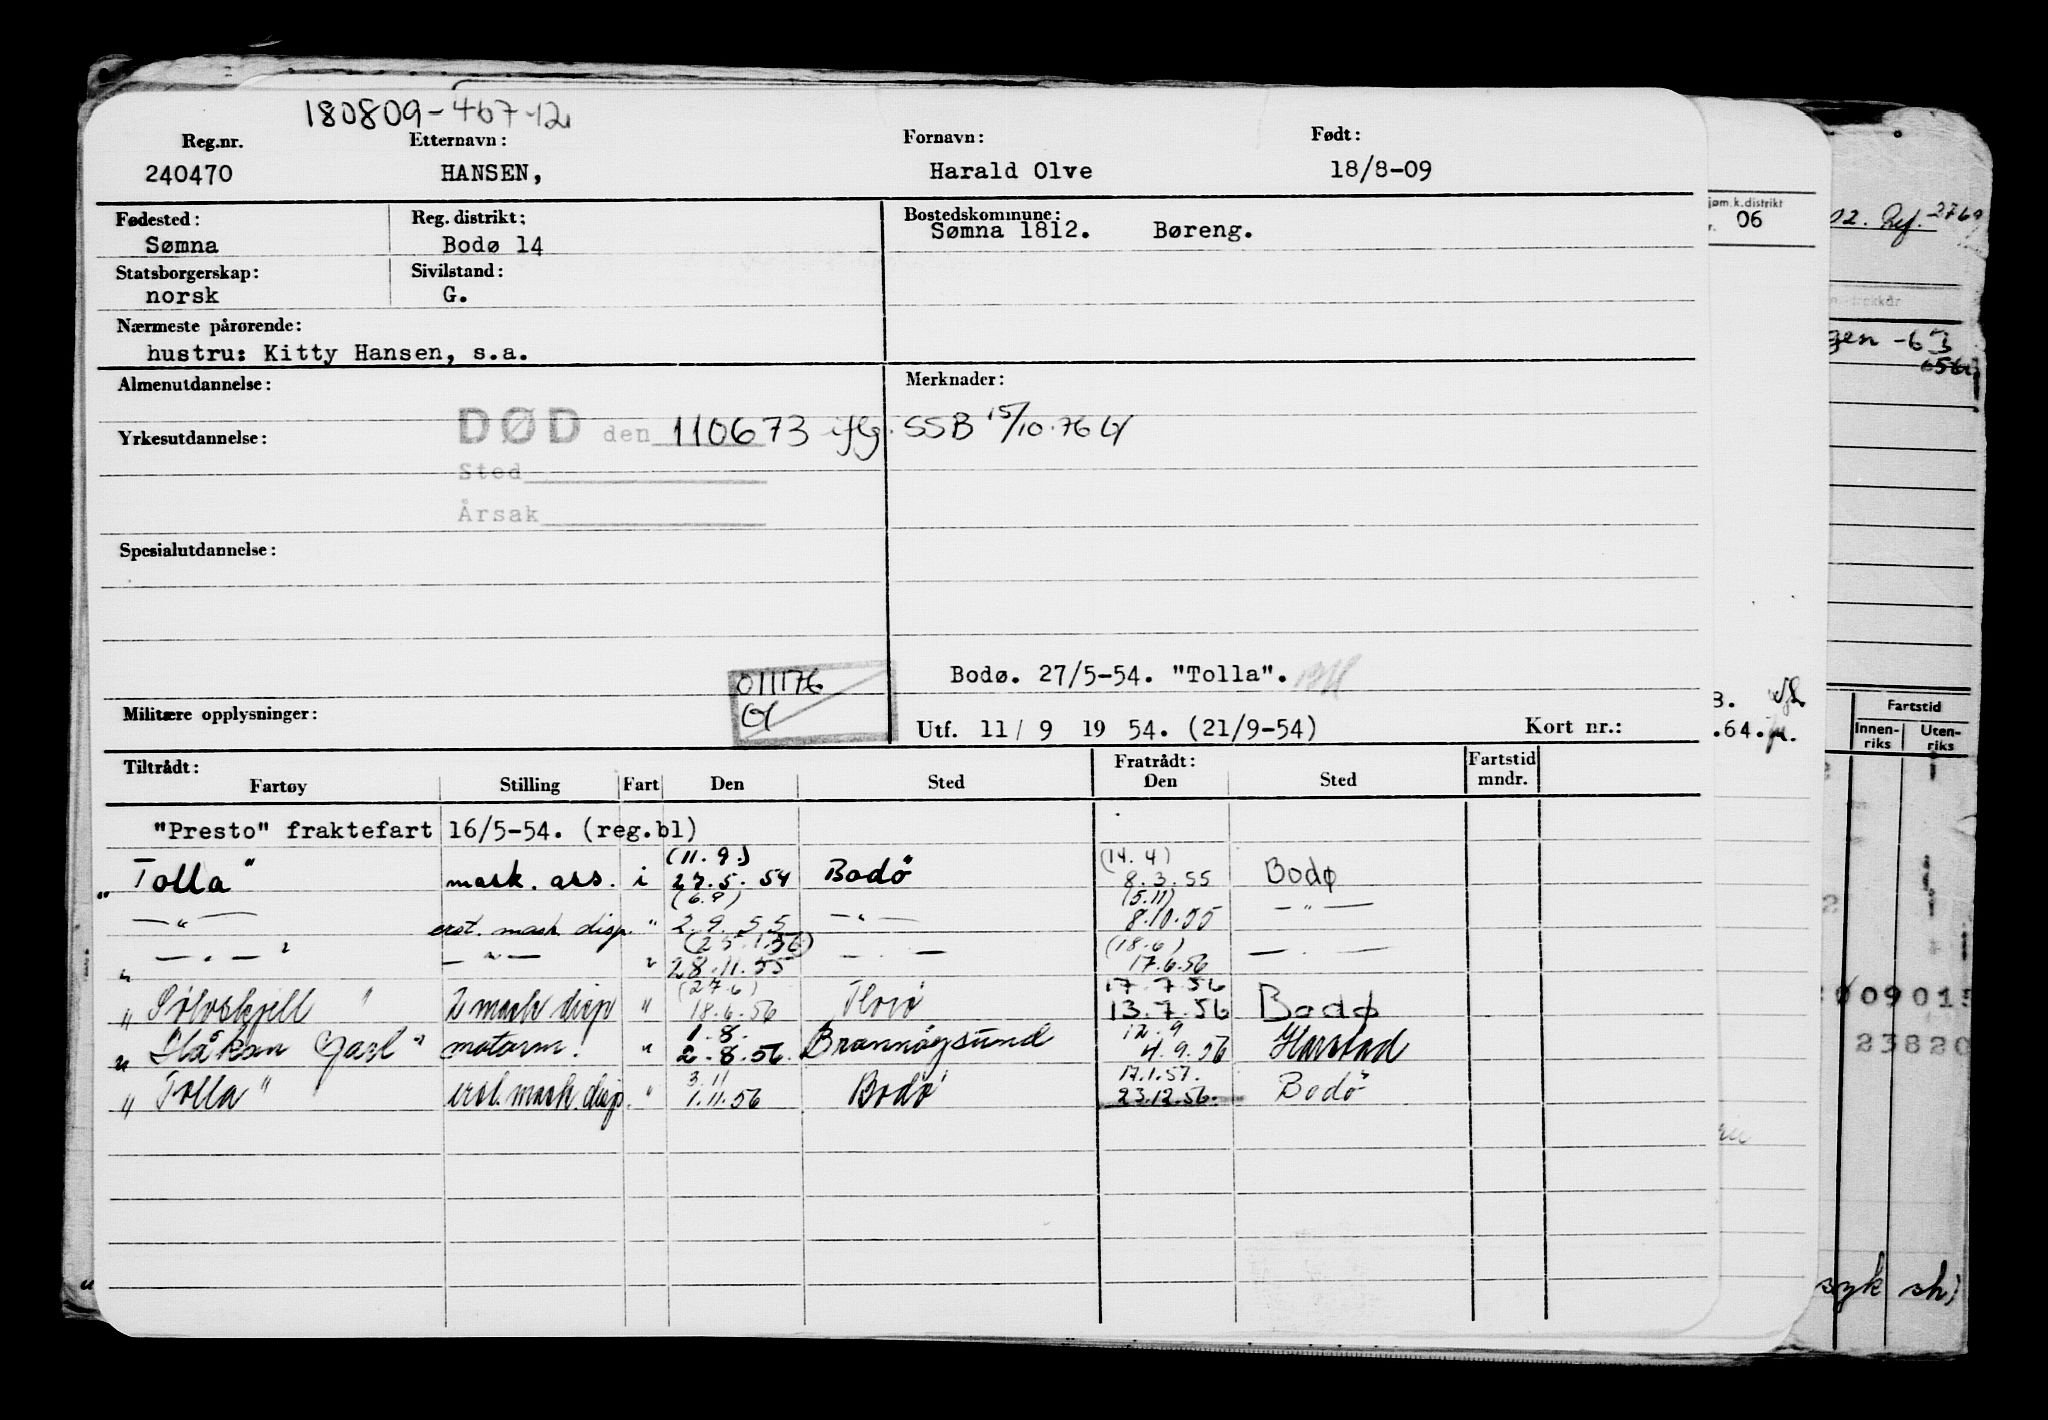 180809-467-12
Reg.nr. Etternavn: Fornavn: Født:
240470 HANSEN, Harald Olve 18/8-09
Fødested: Reg. distrikt: Bostedskommune:
Sømna Bodø 14 Sømna 1812. Børeng.
Statsborgerskap: Sivilstand:
norsk G.
Nærmeste pårørende:
hustru: Kitty Hansen, s.a.
Almenutdannelse: Merknader:
DØD den 110673 iflg. SSB 15/10.76
Yrkesutdannelse:
Sted
Årsak
Spesialutdannelse:
Bodø. 27/5-54. "Tolla".
011176
Militære opplysninger:
Utf. 11/ 9 19 54. (21/9-54) Kort nr.:
Tiltrådt: Fratrådt: Fartstid
Fartøy Stilling Fart Den Sted Den Sted mndr.
"Presto" fraktefart 16/5-54. (reg.bl)
(11.9.) (14.4)
"Tolla" mask. ass. i 27.5.54 Bodø 8.3.55 Bodø
(6.9) (5.11)
—"— erst. mask. disp. " 2.9.55 —"— 8.10.55 —"—
(25.1.56) (18.6)
" —"— " —"— " 28.11.55 —"— 17.6.56 —"—
(27.6) 17.7.56
"Sølvskjell" 2 mask disp " 18.6.56 13.7.56 Bodø
1.8. 12.9
"Håkon Jarl" motorm. " 2.8.56. Brønnøysund 4.9.56 Harstad
3.11 17.1.57.
"Tolla" erst. mask. disp. " 1.11.56 Bodø 23.12.56. Bodø
jøm.k.distrikt
06
.64.
02. Ref. 2769
gen -63
Fartstid
Innen-riks Uten-riks
09015
23820
syk sh)